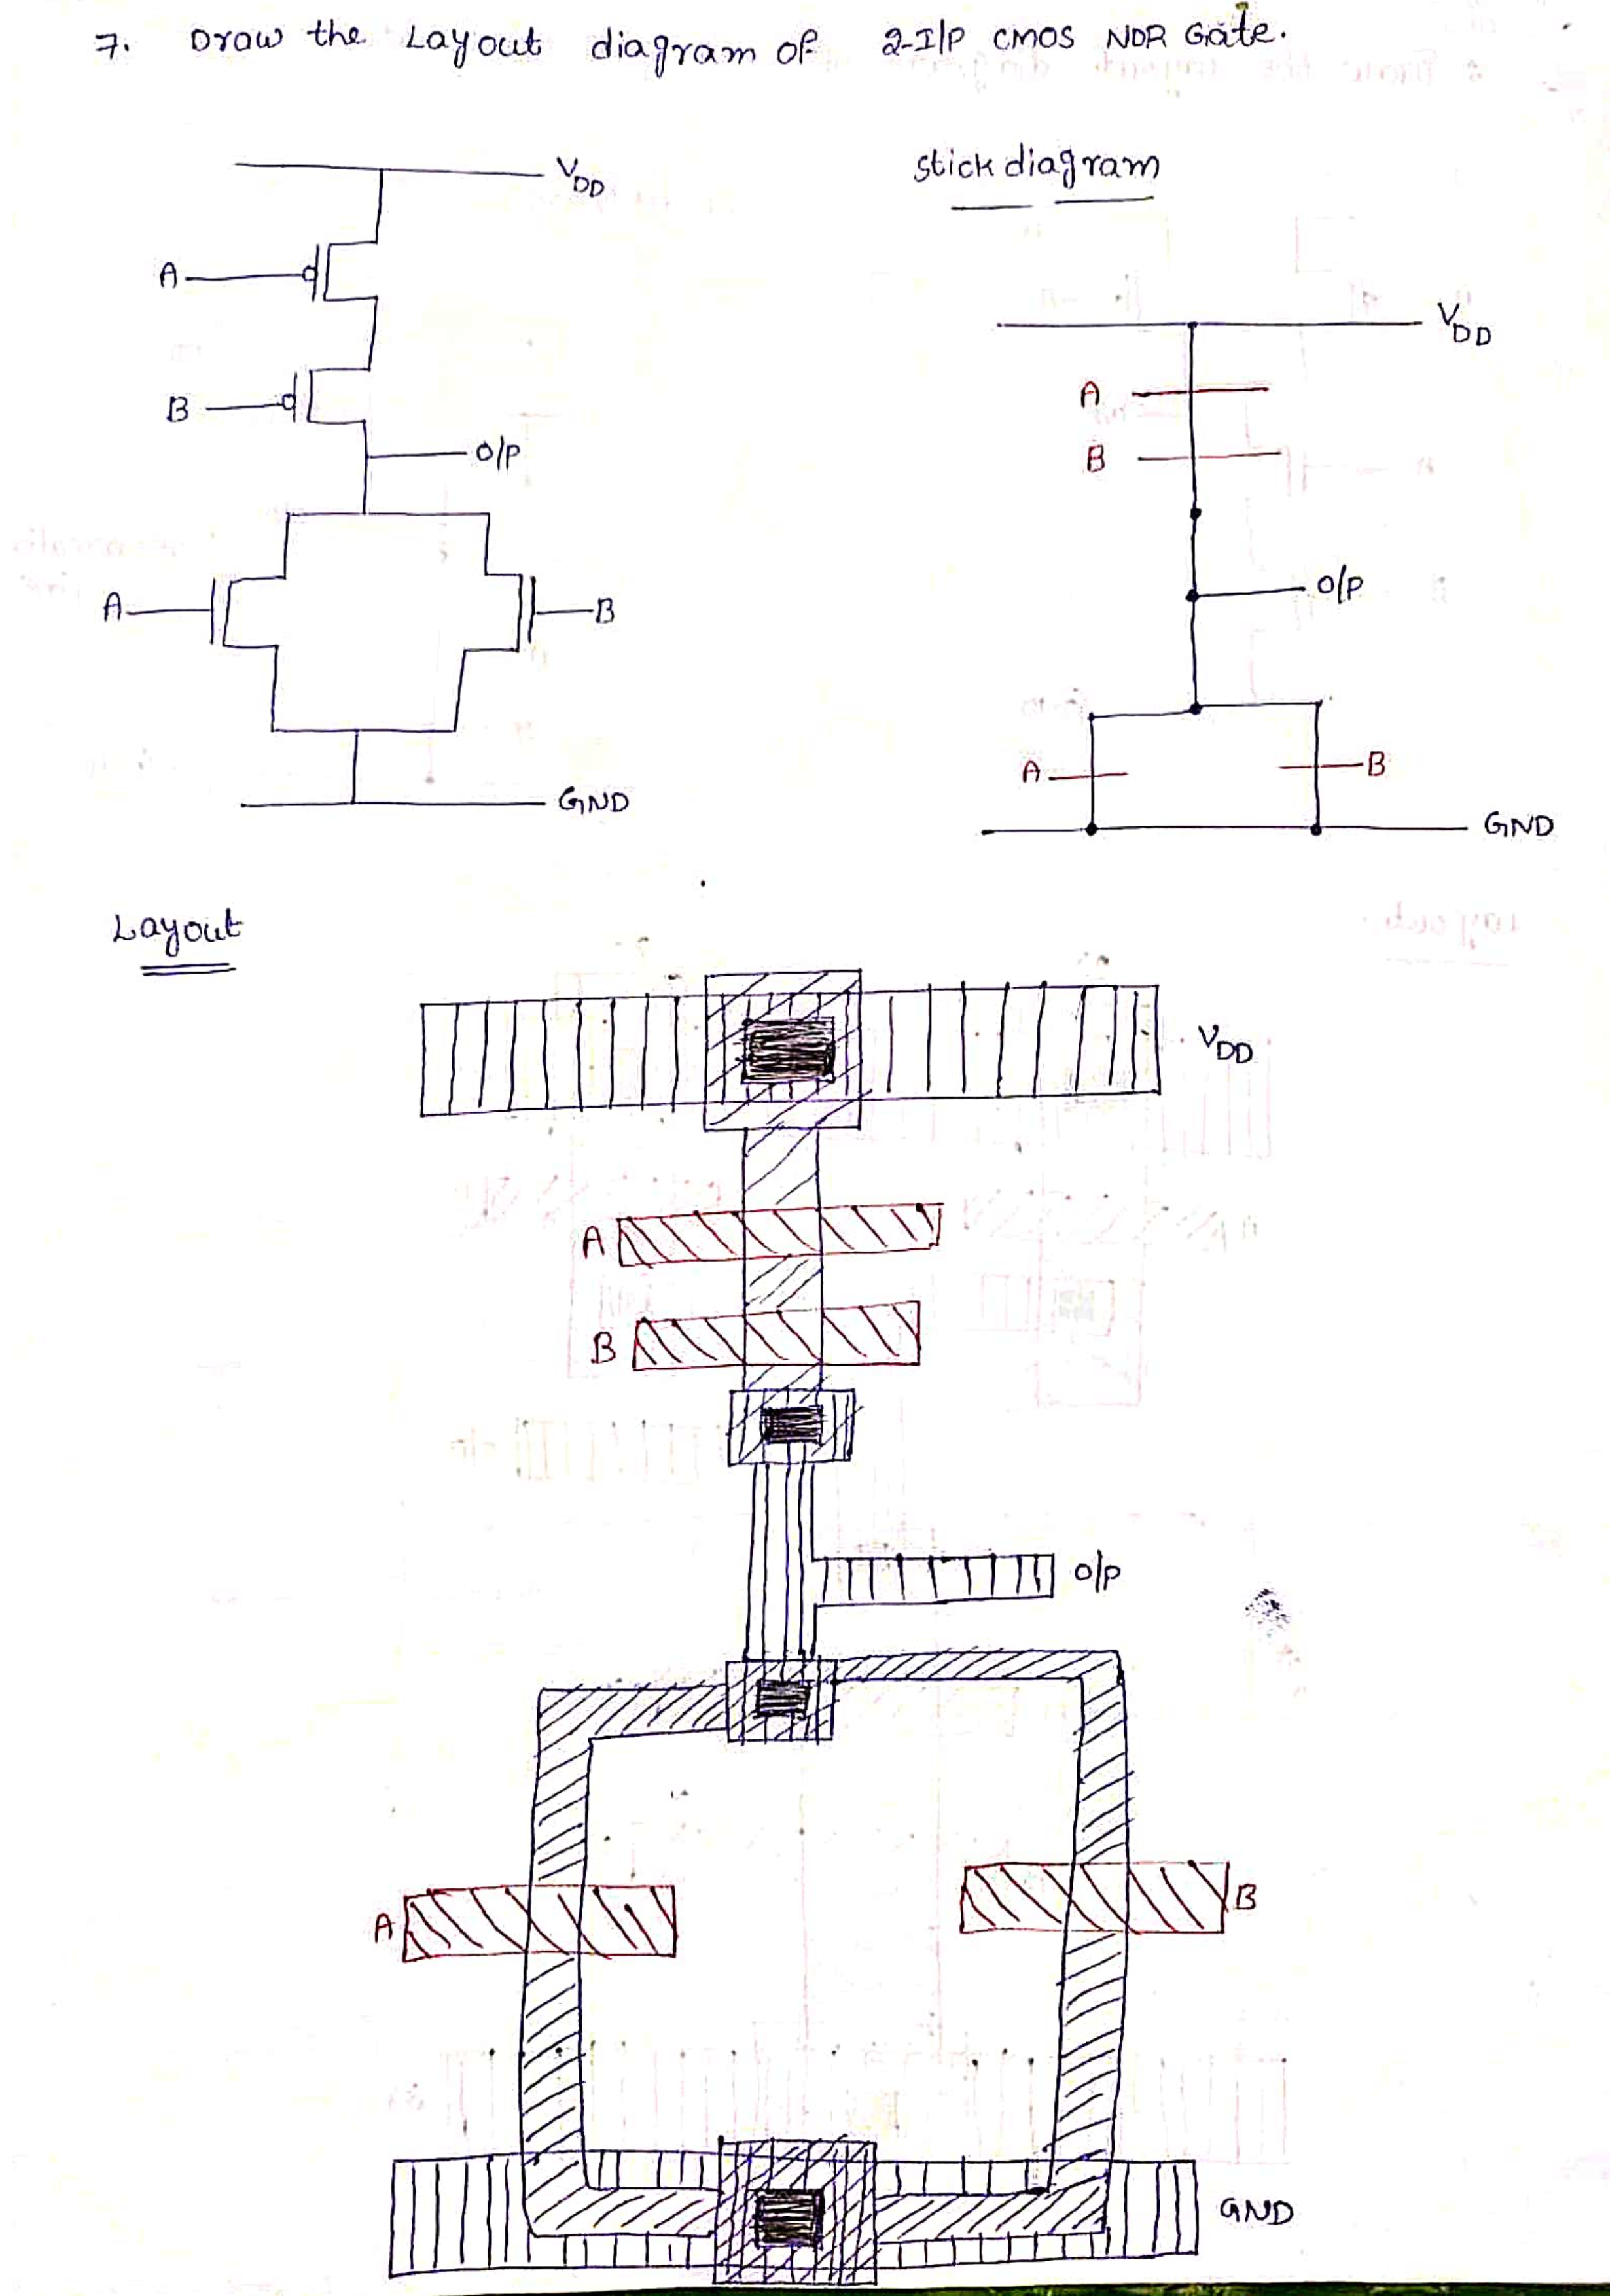 7. Draw the Layout diagram of 2-I/P CMOS NOR Gate.
VDD
A
B
O/P
A
B
GND
stick diagram
VDD
A
B
O/P
A
B
GND
Layout
VDD
A
B
O/P
A
B
GND